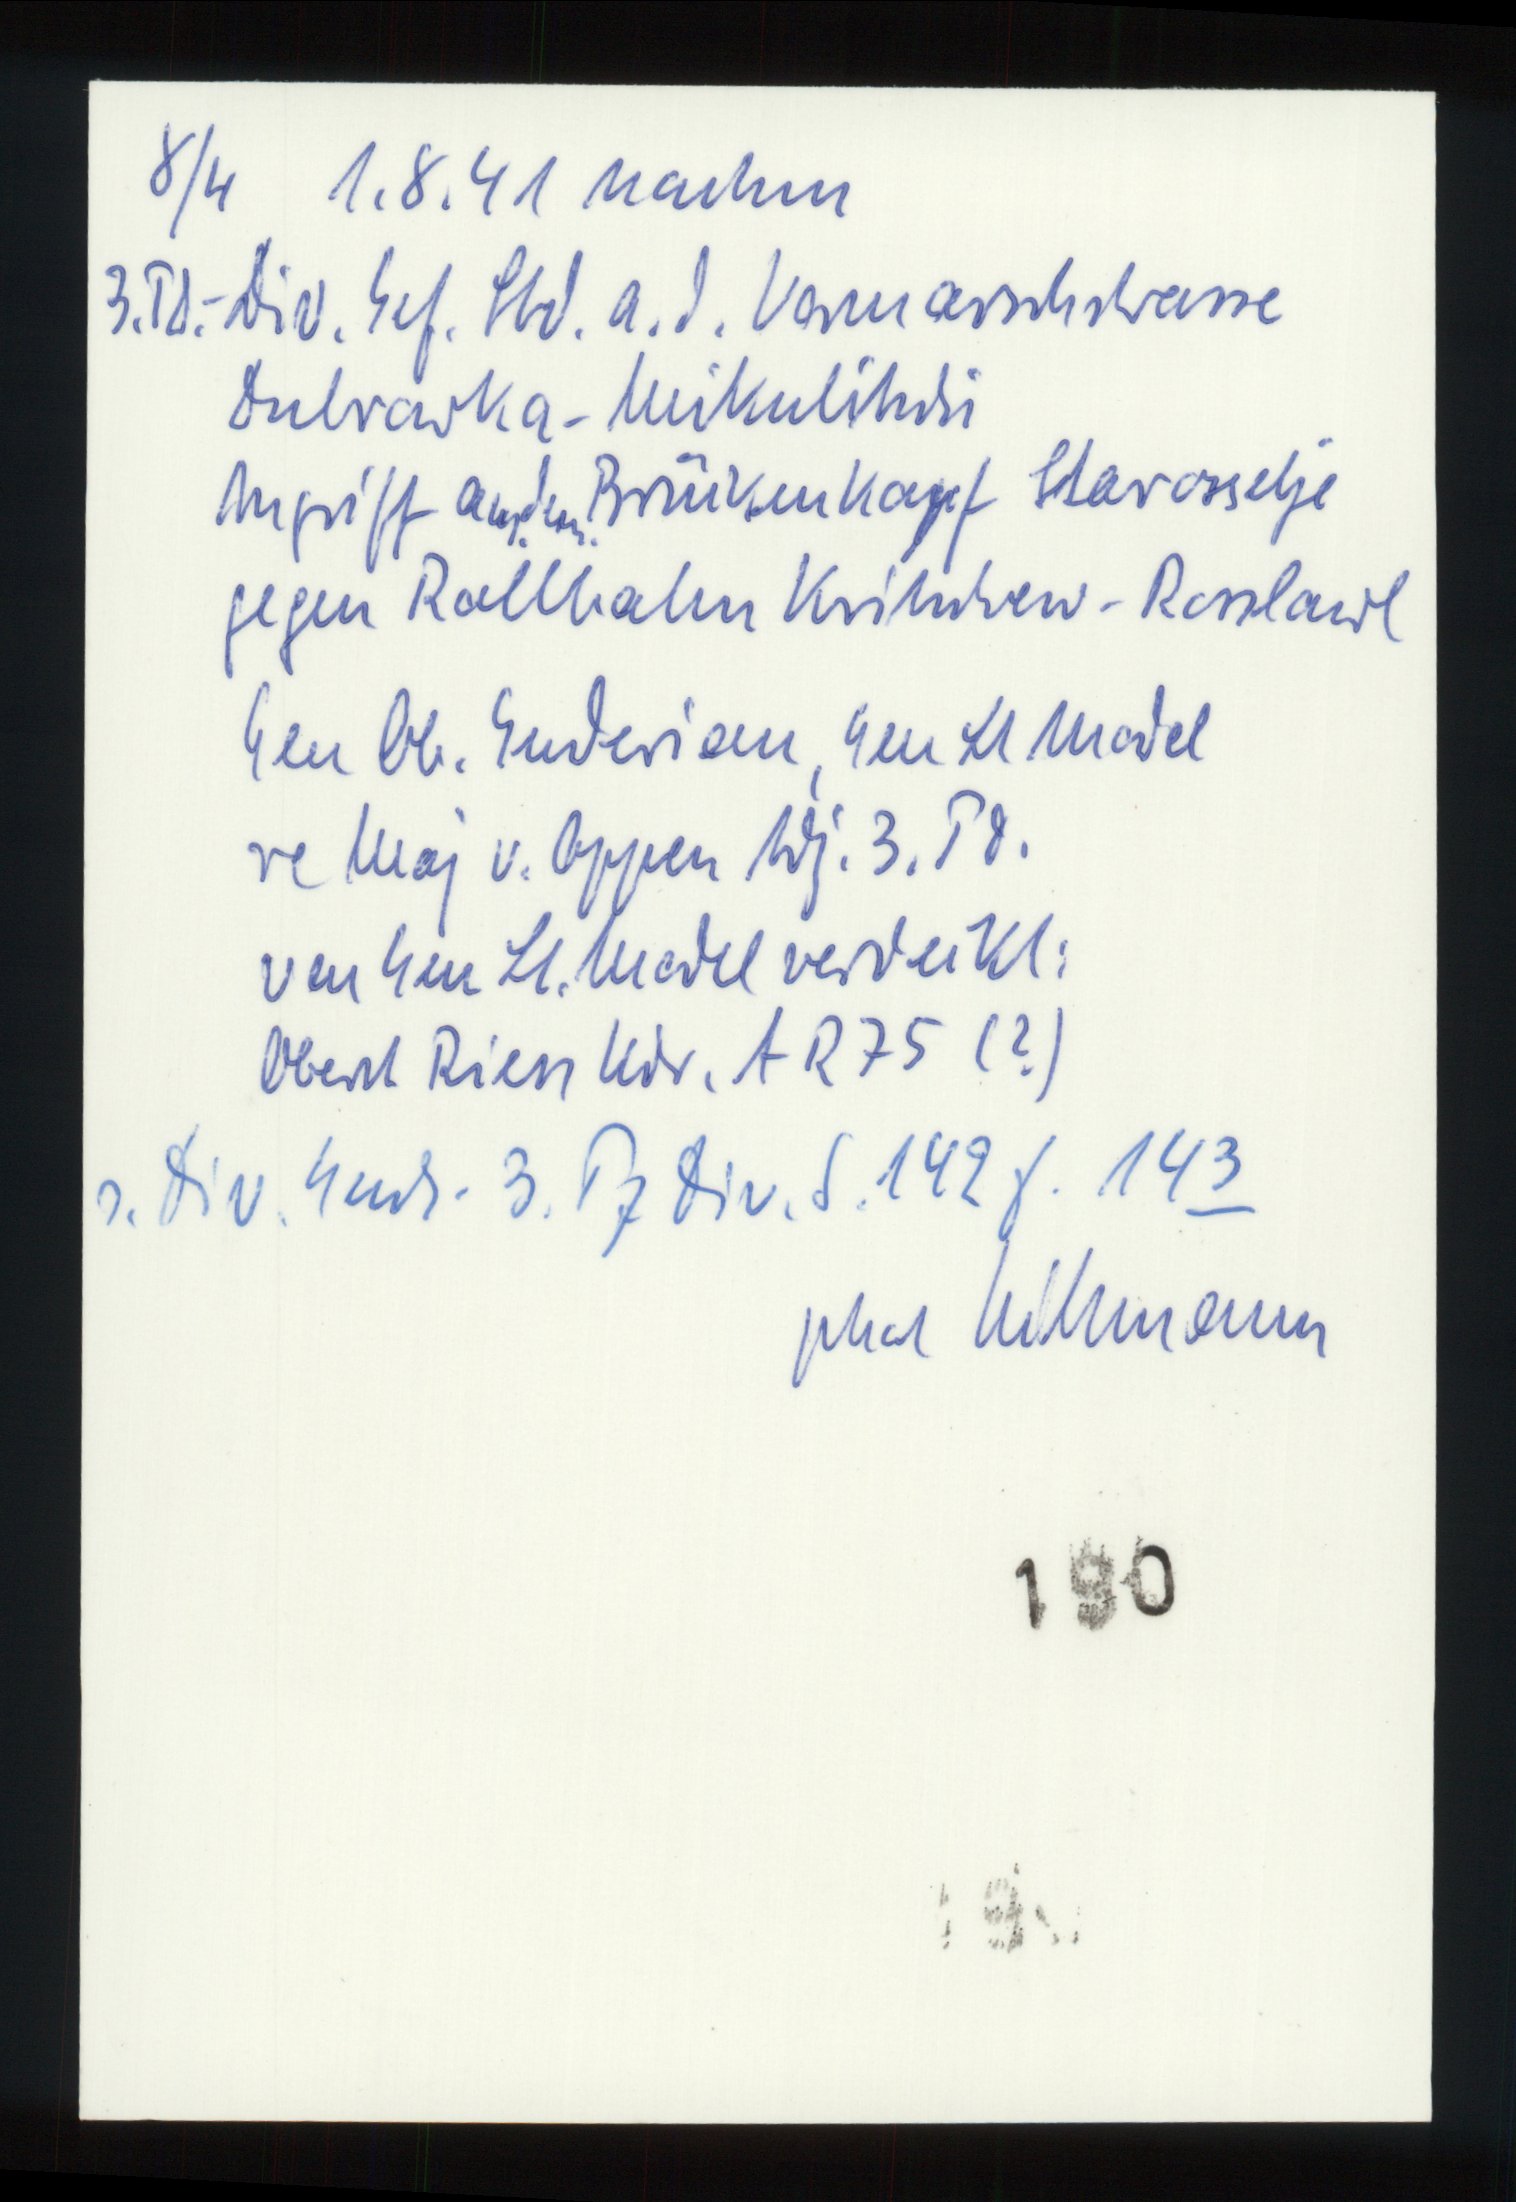 8/4 1.8.41 nachm
3.Pd.-Div. Gef. Std. a.d. Vormarschstrasse
Dubrowka - Mikulitschi
Angriff aus dem Brückenkopf Starosselje
gegen Rollbahn Kritschew - Rosslawl
Gen Ob. Guderian, Gen Lt Model
re Maj v. Oppen Adj. 3. Pd.
von Gen Lt. Model verdeckt:
Oberst Ries Kdr. AR 75 (?)
s. Div. Gesch. 3. Pz Div. S. 142 f. 143
phot
190